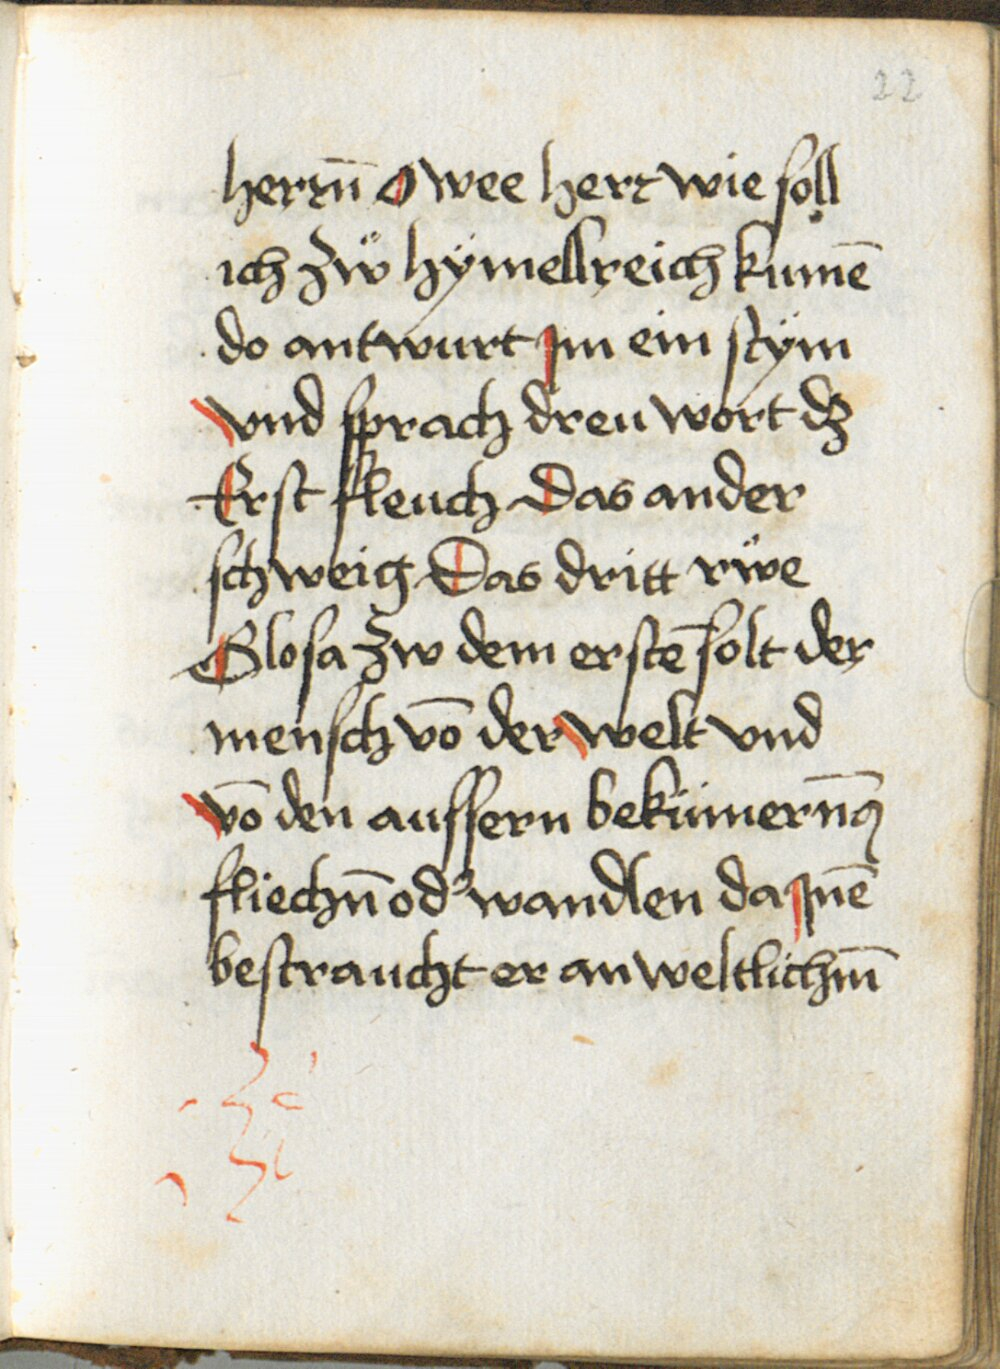 22
herrn̄ O wee herr wie soll
ich zẅ hÿmellreich kumē
do antwurt Jm ein stÿm
vnd sprach dreu wort dz
Erst fleuch Das ander
schweig Das dritt rẅe
Glosa zw dem erstē solt der
mensch vō der welt vnd
vō den aussern bekümern̄g
fliechn̄ od' wandlen da Jnē
bestraucht er an weltlichm̄